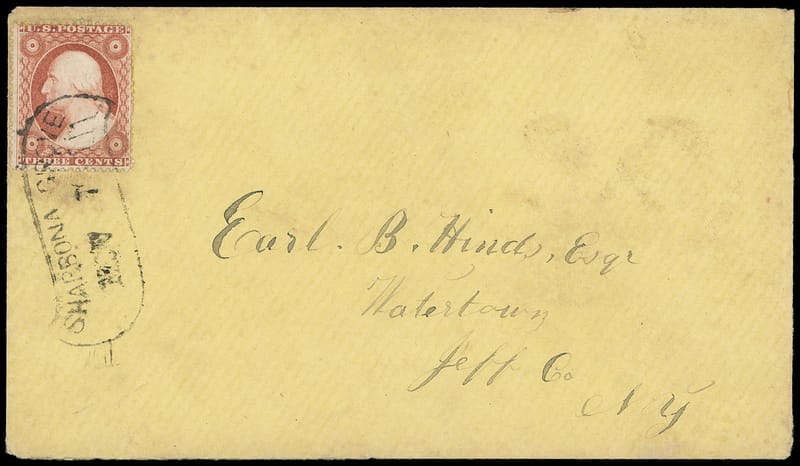 U.S. POSTAGE
THREE CENTS
SHABBONA GROVE
NOV 7
Earl. B. Hinds, Esqr
Watertown
Jeff Co
N Y